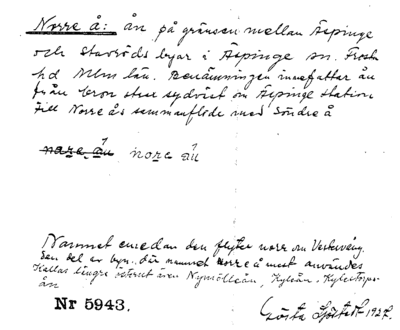 Norre å: ån på gränsen mellan Äspinge
och Starröds byar i Äspinge sn. Frosta
hd Mlms län. Benämningen innefattar ån
från bron strax sydväst om Äspinge station
till Norre ås sammanflöde med Söndre å
nore ån
Namnet emedan den flyter norr om Vesterväng,
den del av byn, där namnet Norre å mest användes.
Kallas längre österut även Nymölleån, Kyleån, Kylestorps-
ån
Nr 5943.
Gösta Sjöstedt 1927.